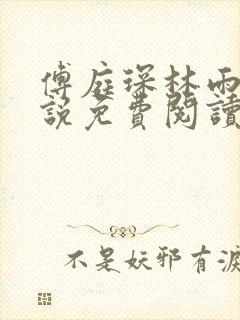 傅庭琛林雨
說免費閱讀
不是妖邪有淚